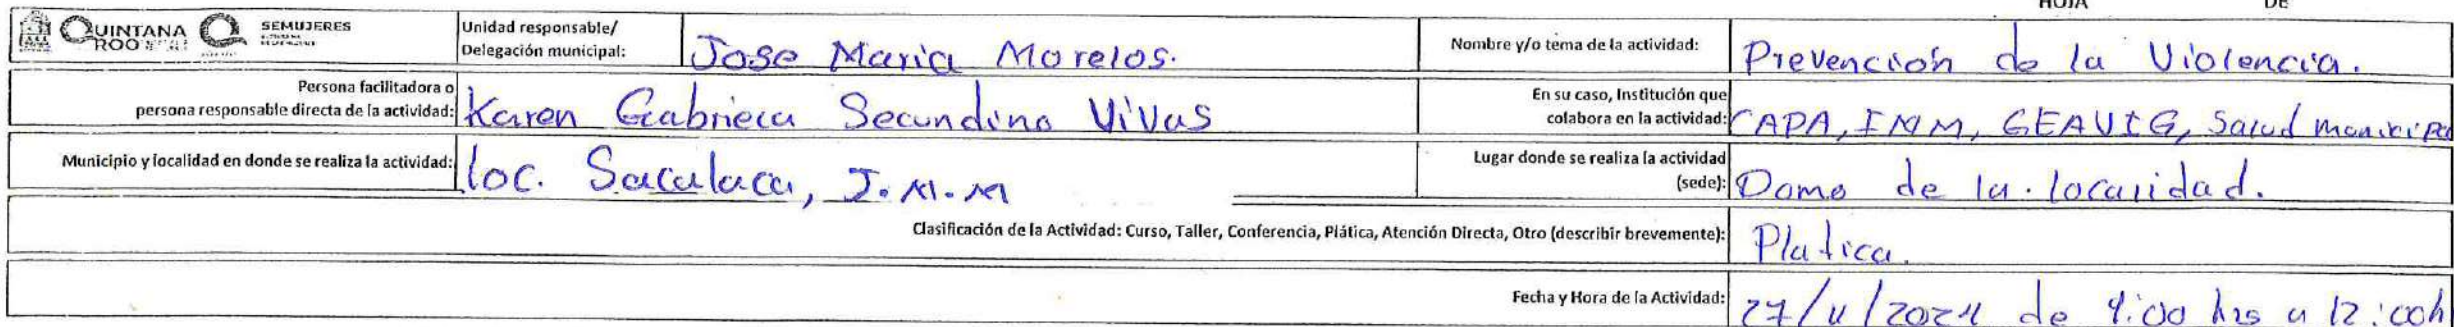 HOJA DE
QUINTANA ROO SEMUJERES
Unidad responsable/ Delegación municipal: Jose Maria Morelos.
Nombre y/o tema de la actividad: Prevención de la Violencia.
Persona facilitadora o persona responsable directa de la actividad: Karen Gabriela Secundino Vivas
En su caso, Institución que colabora en la actividad: CAPA, IMM, GEAVIG, Salud municipal
Municipio y localidad en donde se realiza la actividad: loc. Sacalaca, J.M.M
Lugar donde se realiza la actividad (sede): Domo de la localidad.
Clasificación de la Actividad: Curso, Taller, Conferencia, Plática, Atención Directa, Otro (describir brevemente): Platica.
Fecha y Hora de la Actividad: 27/ /2024 de :00 hrs a 12:00h